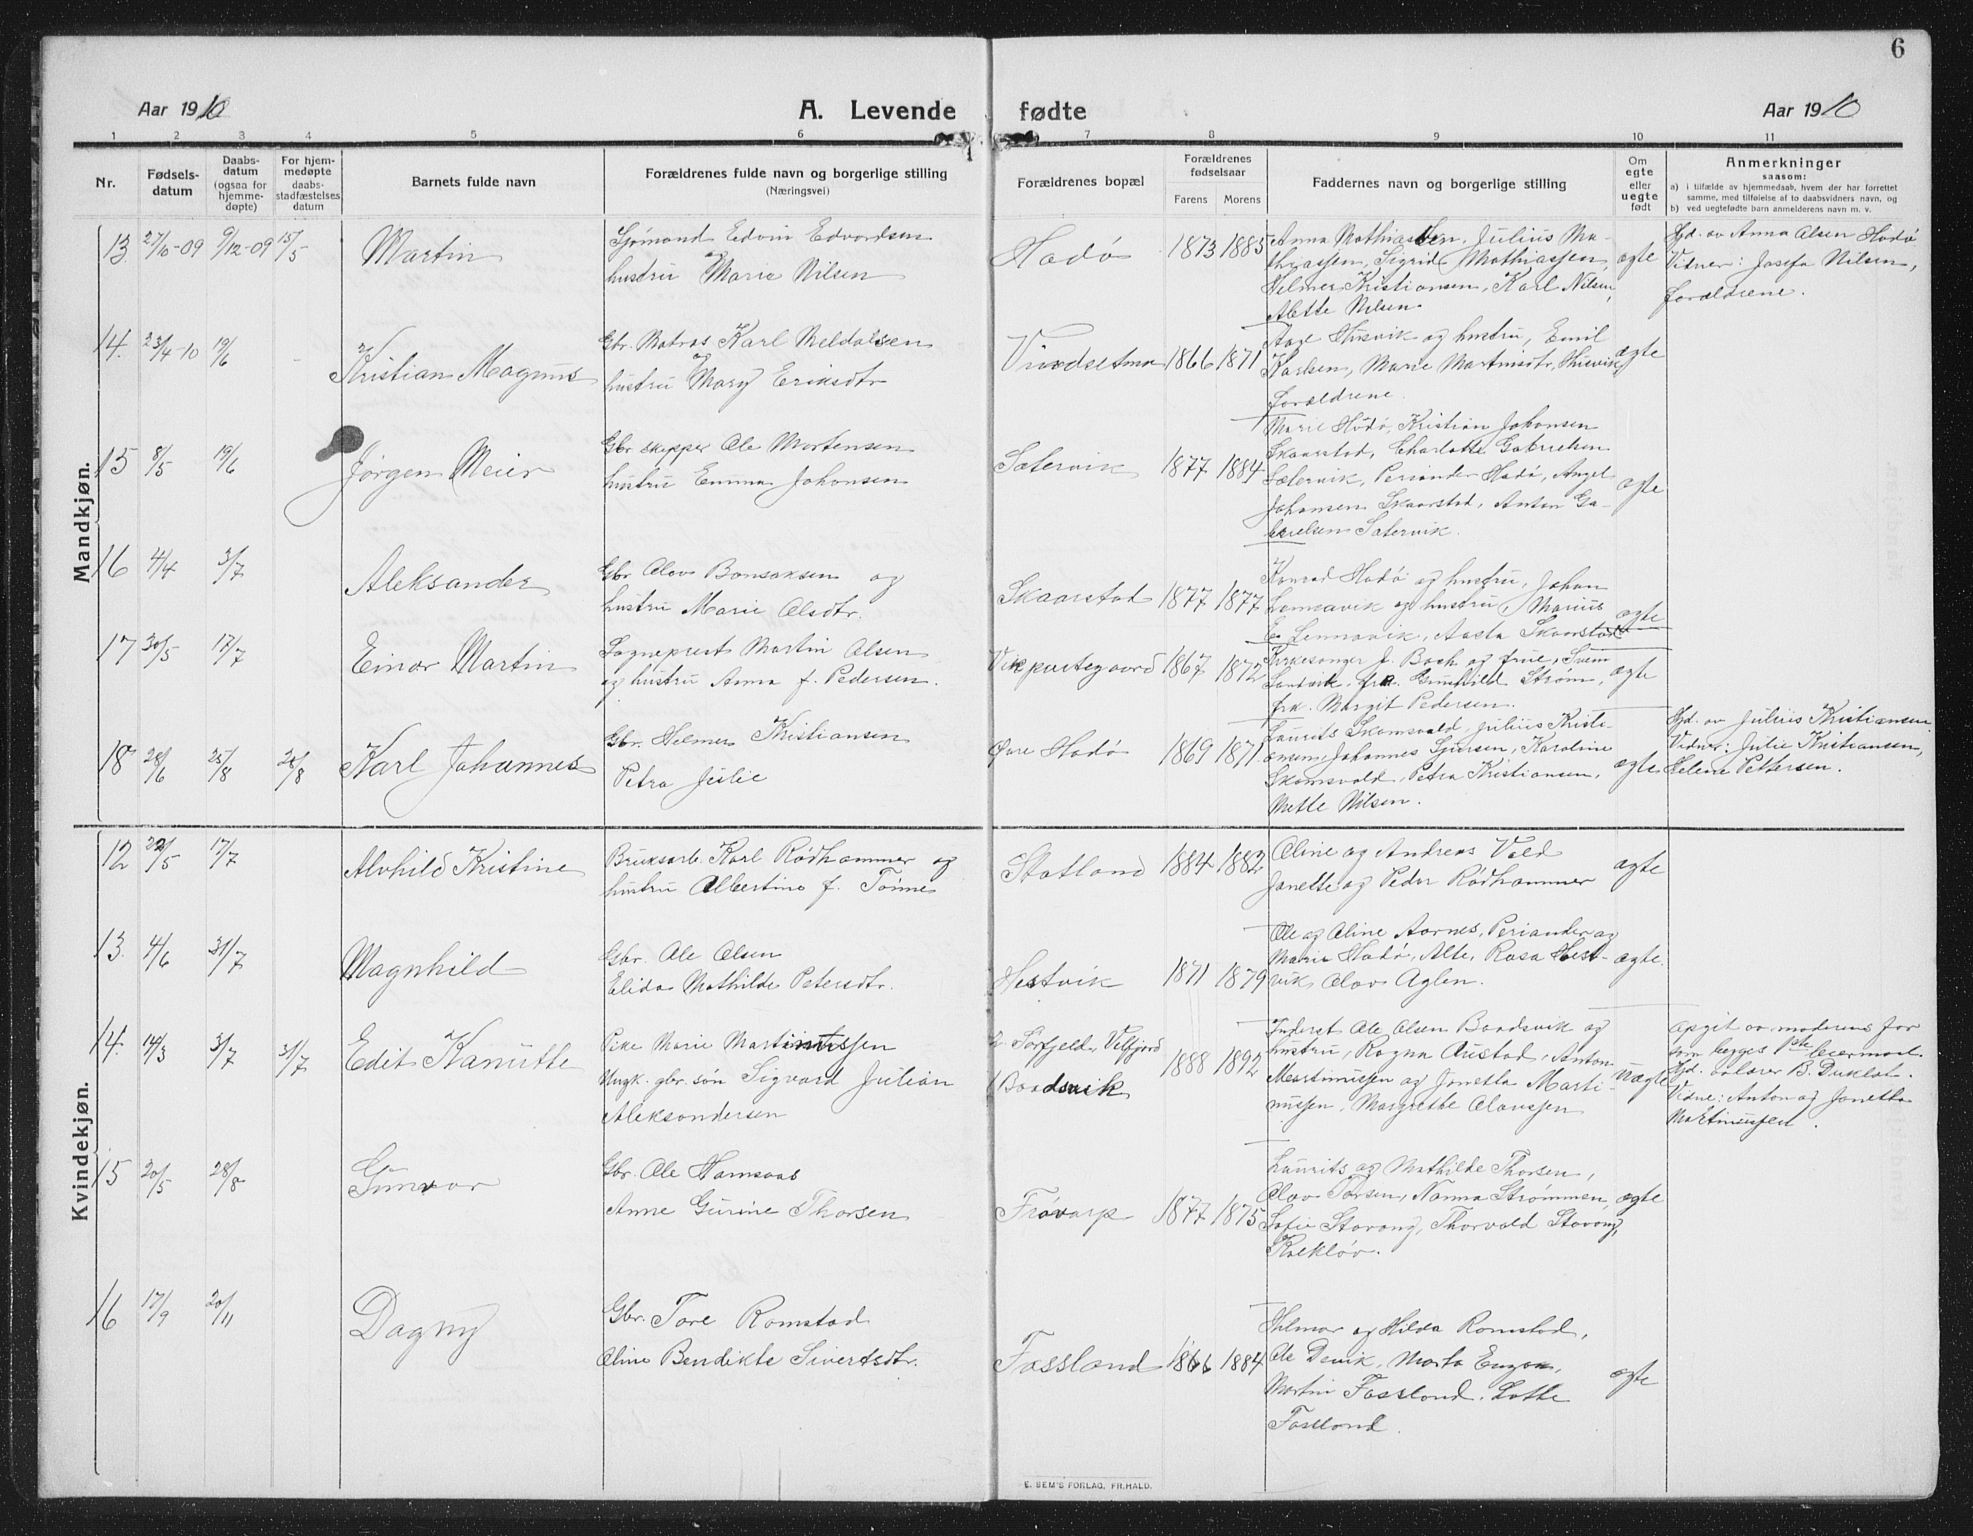 6
Aar 1910
A. Levende fødte
Aar 1910
1 2 3 4 5 6 7 8 9 10 11
Nr.
Fødsels-
datum
Daabs-
datum
(ogsaa for
hjemme-
døpte)
For hjem-
medøpte
daabs-
stadfæstelses
datum
Barnets fulde navn
Forældrenes fulde navn og borgerlige stilling
(Næringsvei)
Forældrenes bopæl
Forældrenes
fødselsaar
Farens Morens
Faddernes navn og borgerlige stilling
Om
egte
eller
uegte
født
Anmerkninger
saasom:
a) i tilfælde av hjemmedaab, hvem der har forrettet
samme, med tilføielse af to daabsvidners navn, og
b) ved uegtefødte barn anmelderens navn m. v.
Mandkjøn.
13 27/10-09 9/12-09 15/5 Martin
Sjømand Edvin Edvardsen
hustru Marie Nilsen
Hadø 1873 1885
Anna Mathiassen, Julius Ma-
thiassen, Sigrid Mathiassen,
Helmer Kristiansen, Karl Nilsen,
Alette Nilsen.
ægte
Hjd. av Anna Olsen Hadø
Vidner: Josefa Nilsen,
forældrene.
14. 23/4-10 19/6 - Kristian Magnus
Gbr. Matros Karl Meldalsen
hustru Mary Eriksdtr
Vindsetmo 1866 1871
Aage Husvik og hustru, Emil
Karlsen, Marie Martinsdtr. Husvik,
forældrene.
ægte
15 8/5 19/6 Jørgen Meier
Gbr. skipper Ole Mortensen
hustru Emma Johansen
Sætervik 1877 1884
Marie Hadø, Kristian Johansen
Skaarstad, Charlotte Gabrielsen
Sætervik, Periander Hadø, Angel
Johansen Skaarstad, Anton Ga-
brielsen Sætervik.
ægte
16 4/4 3/7 Aleksander
Gbr. Olav Bonsaksen og
hustru Marie Olsdtr.
Skaarstad 1877 1877
Konrad Hadø og hustru, Johan
Lennavik og hustru, Marius
E. Lennavik, Aasta Skaarstad
ægte
17 30/5 17/7 Einar Martin
Sogneprest Martin Olsen
og hustru Anna f. Pedersen.
Vik prestegaard 1867 1872
Kirkesanger J. Bach og frue, Svein
Sandvik, frk. Gunhild Strøm,
frk. Margit Pedersen.
ægte
18 28/6 25/8 28/8 Karl Johannes
Gbr. Helmer Kristiansen
Petra Julie
Øvre Hadø 1869 1871
Laurits Skomsvold, Julius Kristi-
ansen, Johannes Sjursen, Karoline
Skomsvold, Petra Kristiansen,
Mette Nilsen.
ægte
Hjd. av Julius Kristiansen
Vidner: Julie Kristiansen,
Helene Pettersen.
Kvindekjøn.
12 22/5 17/7 Alvhild Kristine
Bruksarb. Karl Rødhammer og
hustru Albertine f. Tønne
Statland 1884 1882
Oline og Andreas Vold
Janette og Peder Rødhammer
ægte
13. 4/6 31/7 Magnhild
Gbr. Ole Olsen
Elida Mathilde Petersdtr.
Hestvik 1871 1879
Ole og Oline Aarnes, Periander og
Marie Hadø, Alte, Rosa Hest-
vik, Olav Aglen.
ægte.
14. 14/3 3/7 31/7 Edit Kanutte
Pike Marie Martinussen
Ungk. gbr. søn Sigvard Julian
Aleksandersen
2 Sørfjeld, Velfjord
1 Baadsvik 1888 1892
Inderst Ole Olsen Baadsvik og
hustru, Ragna Austad, Anton
Martinussen og Jonetta Marti-
nussen, Margrethe Olaussen
uægte
Opgit av moderens far
som begges 1ste leiermaal.
Hjd. av lærer B. Duklæt.
Vidne: Anton og Jonetta
Martinussen.
15 20/5 28/8 Gunvor
Gbr. Ole Hamsaas
Anne Gurine Thorsen
Frøvarp 1877 1875
Laurits og Mathilde Thorsen,
Olav Torsen, Nanna Strømmen,
Sofie Stavang, Thorvald Stavang,
Kalkløv.
ægte
16 17/9 20/11 Dagny
Gbr. Tore Romstad
Oline Bendikte Sivertsdtr.
Fassland 1866 1884
Hilmar og Hilda Romstad,
Ole Devik, Marta Engan,
Martin Fassland, Lotte
Fassland.
ægte
E. SEM'S FORLAG, FR.HALD.